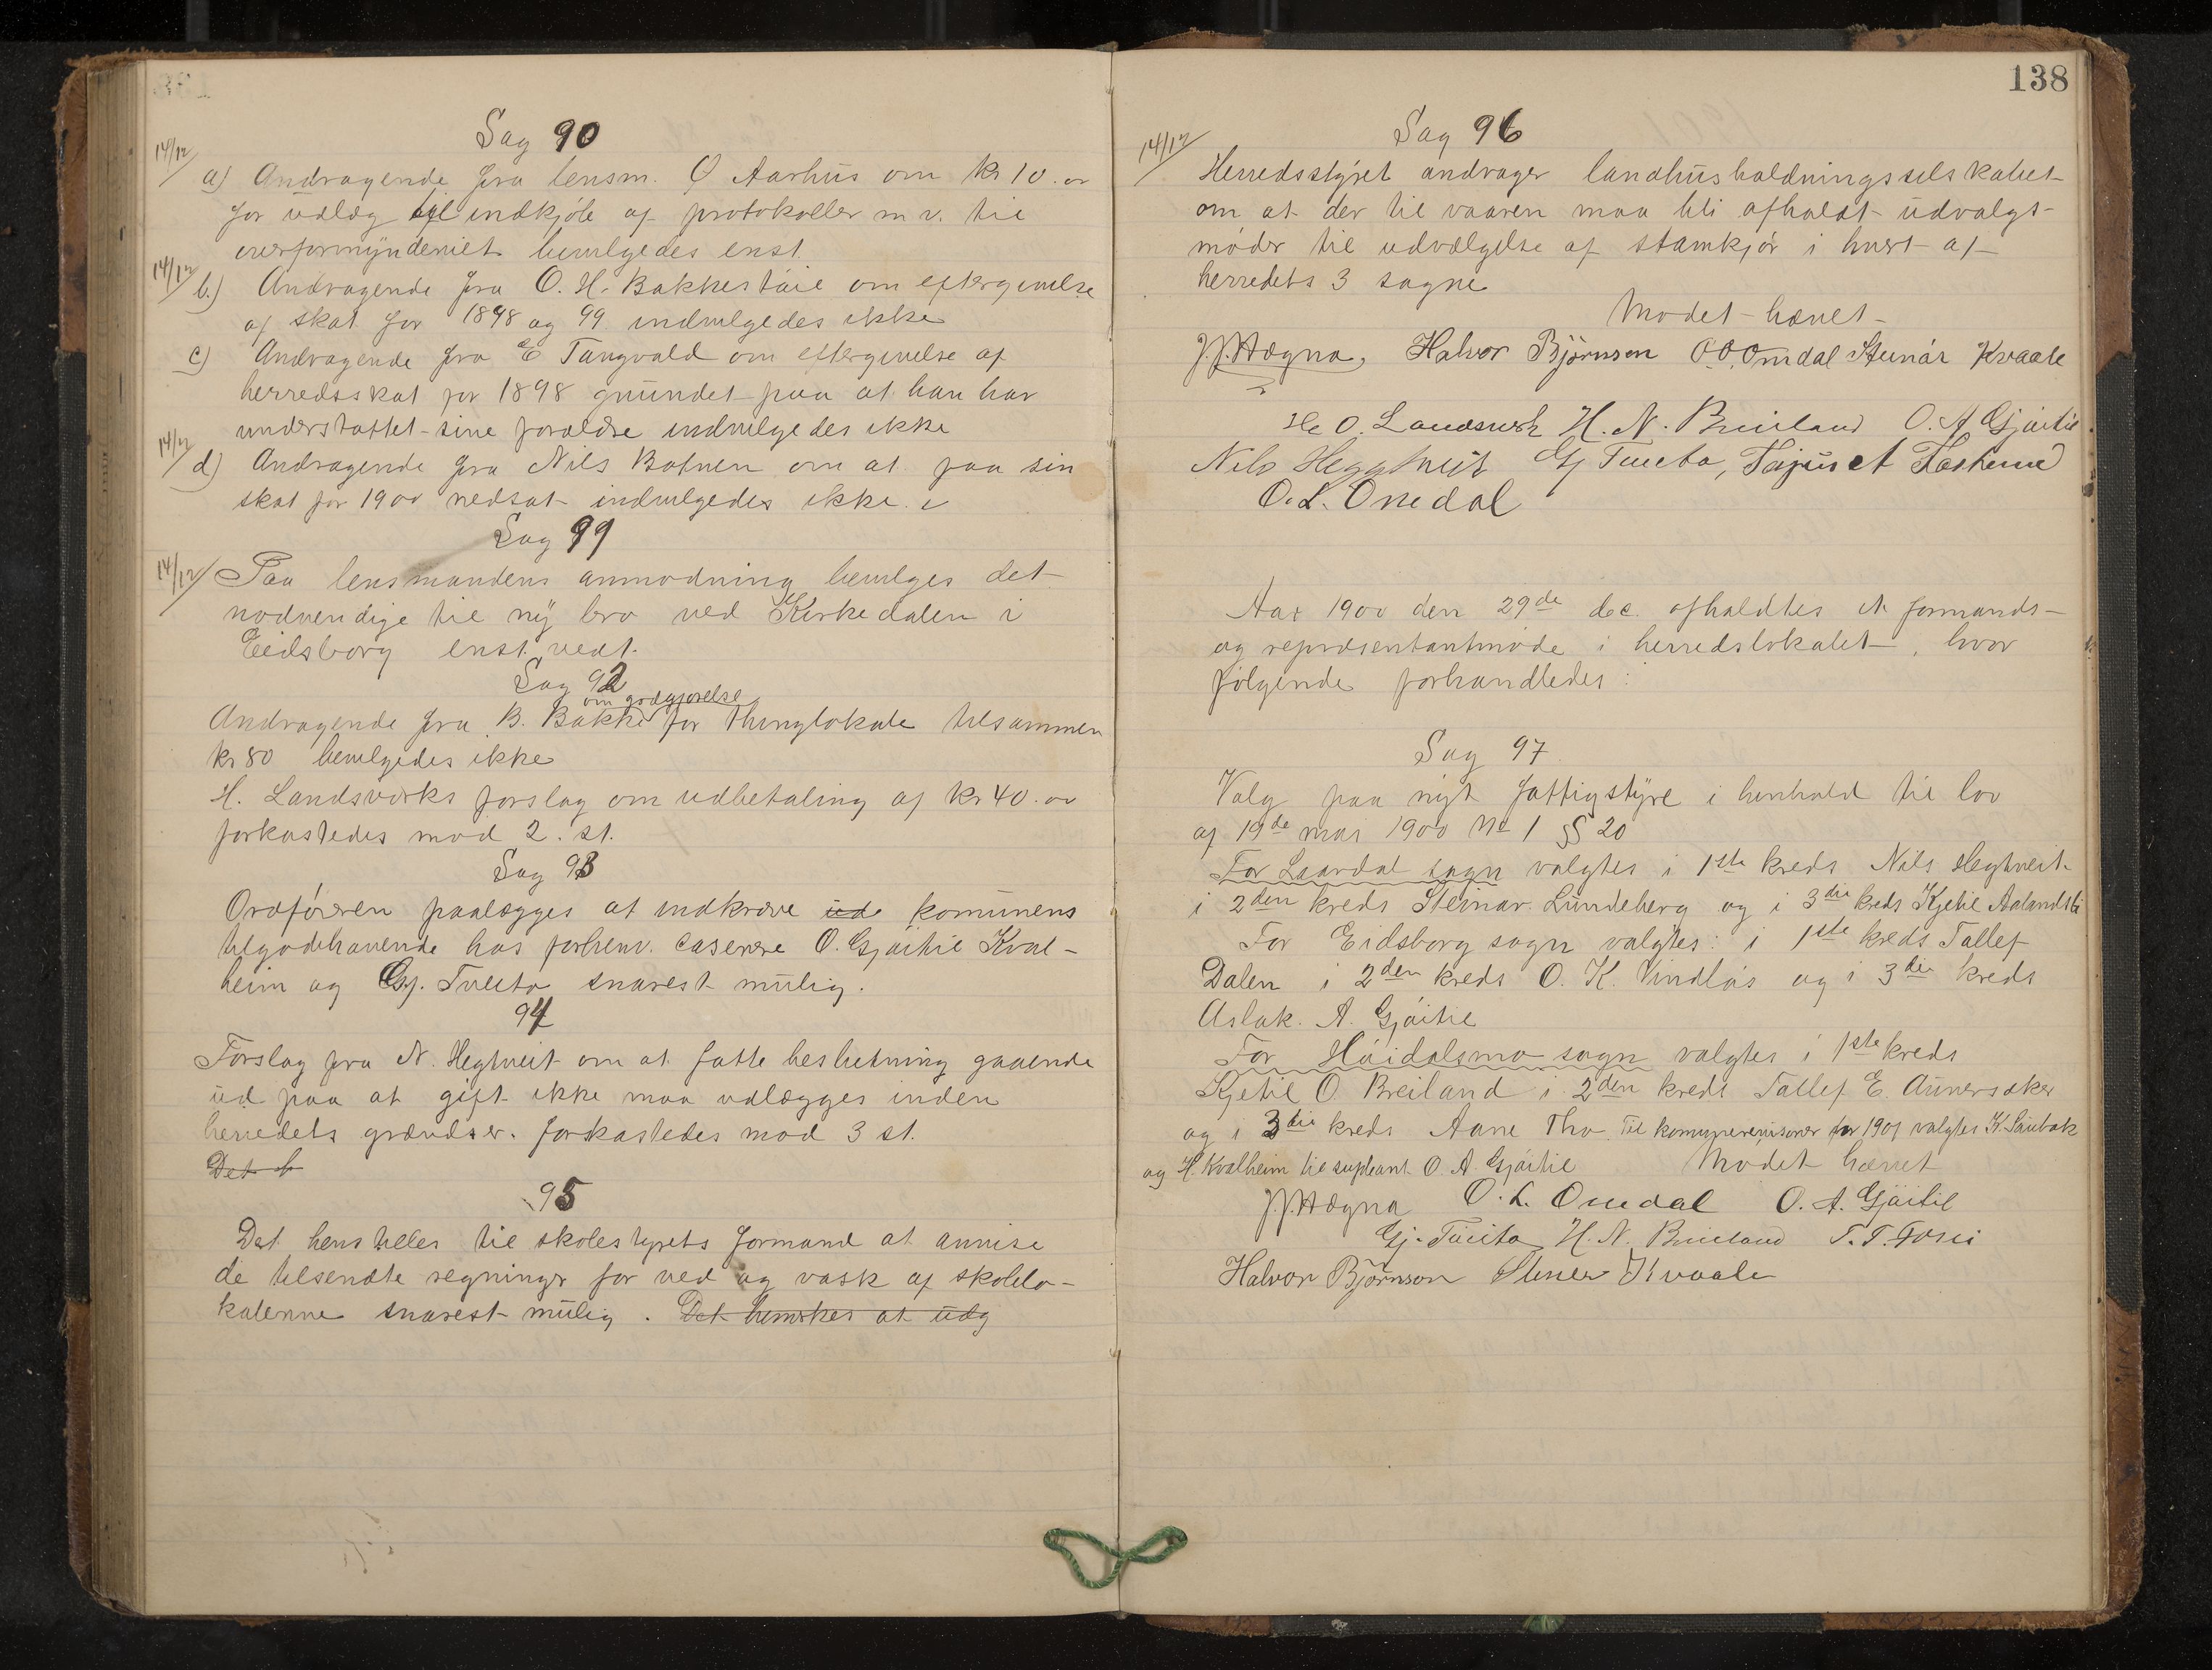 Sag 90
14/12
a) Andragende fra lensm. Ø Aarhus om kr 10.00
for udlæg til indkjøb af protokoller m v. til
overformynderiet bevilgedes enst.
14/12
b.) Andragende fra O. H. Bakkestøil om eftergivelse
af skat for 1898 og 99 indvilgedes ikke
c) Andragende fra E Tangvald om eftergivelse af
herredsskat for 1898 grundet paa at han har
understøttet sine forældre indvilgedes ikke
14/12
d) Andragende fra Nils Botnen om at faa sin
skat for 1900 nedsat indvilgedes ikke.
Sag 91
14/12
Paa lensmandens anmodning bevilges det
nødvendige til ny bro ved Kirkedalen i
Eidsborg enst. vedt.
Sag 92
om godtgjørelse
Andragende fra B. Bakke for Thinglokale tilsammen
kr 80 bevilgedes ikke
H. Landsverks forslag om udbetaling af kr 40.00
forkastedes mod 2. st.
Sag 93
Ordføreren paalægges at indkræve ude komunens
tilgodehavende hos forhenv. caserere O. Gjøitil Kval-
heim og Gj. Tveito snarest mulig.
94
Forslag fra N. Hegtveit om at fatte beslutning gaaende
ud paa at gift ikke maa udlægges inden
herredets grændser. forkastedes mod 3 st.
Det b
95
Det henstilles til skolestyrets formand at anvise
de tilsendte regninger for ved og vask af skolelo-
kalerne snarest mulig. Det bemerkes at udg
138
Sag 96
14/12
Herredsstyret andrager landhusholdningsselskabet
om at der til vaaren maa bli afholdt udvalgs-
møder til udvælgelse af stamkjør i hvert af
herredets 3 sogne
Mødet hævet
J. J. Hægna, Halvor Björnson O. O. Omdal Steinar Kvaale
H. O. Landsverk H. N. Breiland O. A. Gjøitil
Nils Heggtveit Gj Tveito, Tarjei
O. L. Omdal
Aar 1900 den 29de dec. afholdtes et formands-
og representantmøde i herredslokalet, hvor
følgende forhandledes:
Sag 97
Valg paa nyt fattigstyre i henhold til lov
af 19de mai 1900 No 1 § 20
For Laardal sogn valgtes i 1ste kreds Nils Hegtveit
i 2den kreds Steinar Lundeberg og i 3die kreds Kjetil Aalandsli
For Eidsborg sogn valgtes: i 1ste kreds Tallef
Dalen i 2den kreds O. K. Vindlaas og i 3die kreds
Aslak. A. Gjøitil
For Høidalsmo sogn valgtes i 1ste kreds
Kjetil O. Breiland i 2den kreds Tallef E. Aunersaker
og i 3die kreds Aane Tho Til komunerevisorer for 1901 valgtes K. Laubak
og H. Kvalheim til supleant O. A. Gjøitil Mødet hævet
J. J. Hægna O. L. Omdal O. A. Gjøitil
Gj. Tveito H. N. Breiland T. T. Fosei
Halvor Björnson Steinar Kvaale